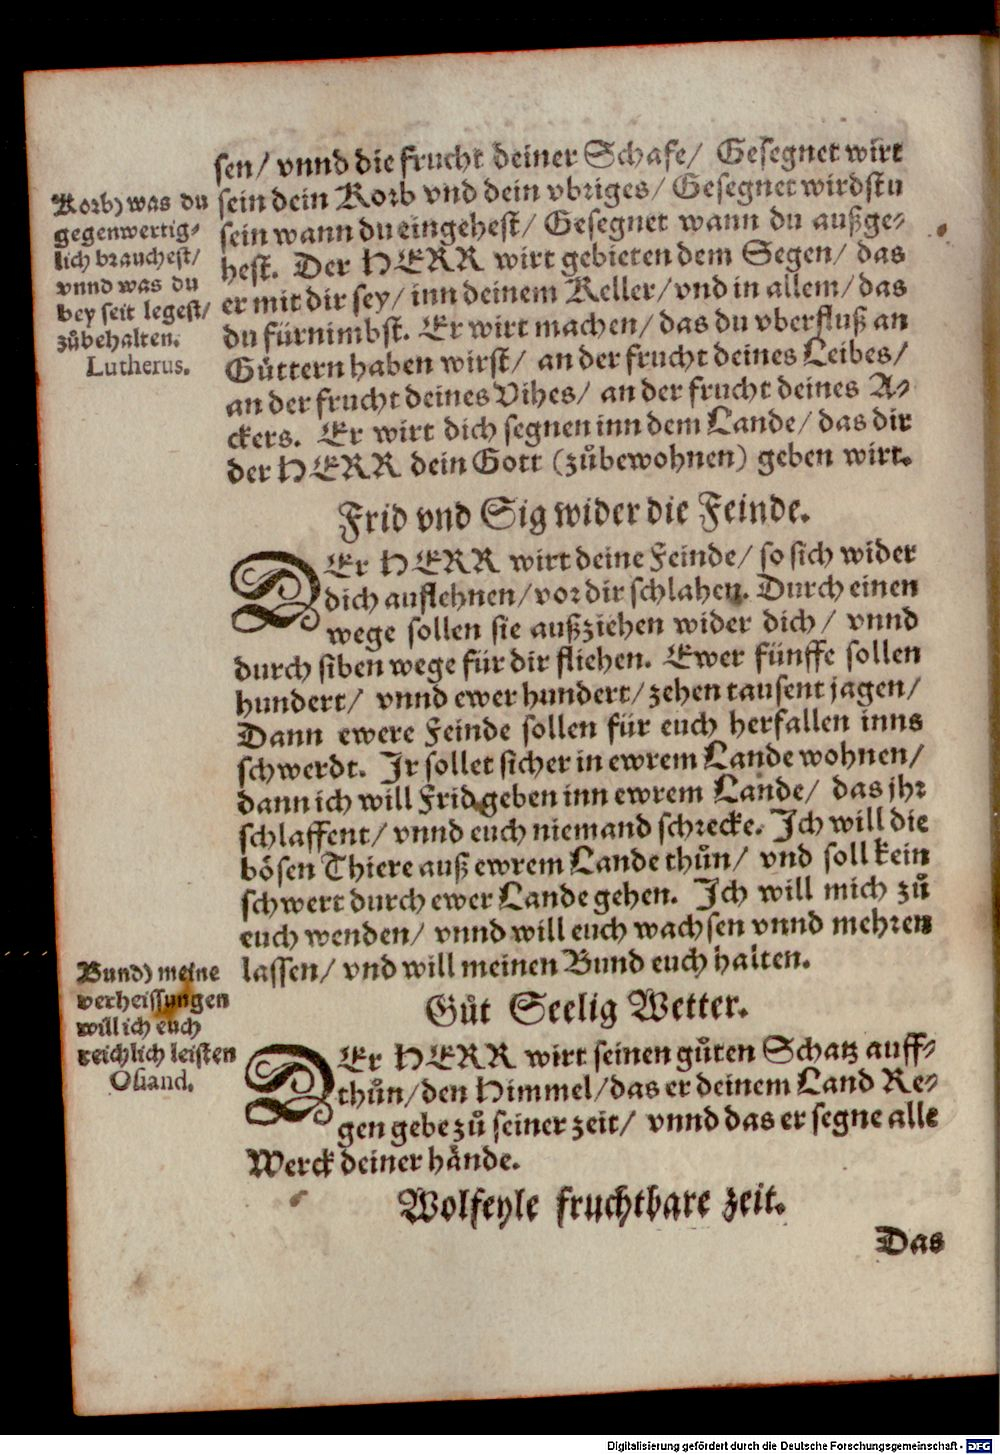 sen/ vnnd die frucht deiner Schafe/ Gesegnet wirt
sein dein Korb vnd dein vbriges/ Gesegnet wirdstu
sein wann du eingehest/ Gesegnet wann du außge-
hest. Der HERR wirt gebieten dem Segen/ das
er mit dir sey/ inn deinem Keller/ vnd in allem/ das
du fürnimbst. Er wirt machen/ das du vberfluß an
Gůttern haben wirst/ an der frucht deines Leibes/
an der frucht deines Vihes/ an der frucht deines A-
ckers. Er wirt dich segnen inn dem Lande/ das dir
der HERR dein Gott (zůbewohnen) geben wirt.
Korb) was du
gegenwertig-
lich brauchest/
vnnd was du
bey seit legest/
zůbehalten.
Lutherus.
Frid vnd Sig wider die Feinde.
DEr HERR wirt deine Feinde/ so sich wider
dich auflehnen/ vor dir schlahen. Durch einen
wege sollen sie außziehen wider dich/ vnnd
durch siben wege für dir fliehen. Ewer fünffe sollen
hundert/ vnnd ewer hundert/ zehen tausent jagen/
Dann ewere Feinde sollen für euch herfallen inns
schwerdt. Ir sollet sicher in ewrem Lande wohnen/
dann ich will Frid geben inn ewrem Lande/ das jhr
schlaffent/ vnnd euch niemand schrecke. Ich will die
bösen Thiere auß ewrem Lande thůn/ vnd soll kein
schwert durch ewer Lande gehen. Ich will mich zů
euch wenden/ vnnd will euch wachsen vnnd mehren
lassen/ vnd will meinen Bund euch halten.
Bund) meine
verheissungen
will ich euch
reichlich leisten
Osiand.
Gůt Seelig Wetter.
DEr HERR wirt seinen gůten Schatz auff-
thůn/ den Himmel/ das er deinem Land Re-
gen gebe zů seiner zeit/ vnnd das er segne alle
Werck deiner hände.
Wolfeyle fruchtbare zeit.
Das
Digitalisierung gefördert durch die Deutsche Forschungsgemeinschaft - DFG